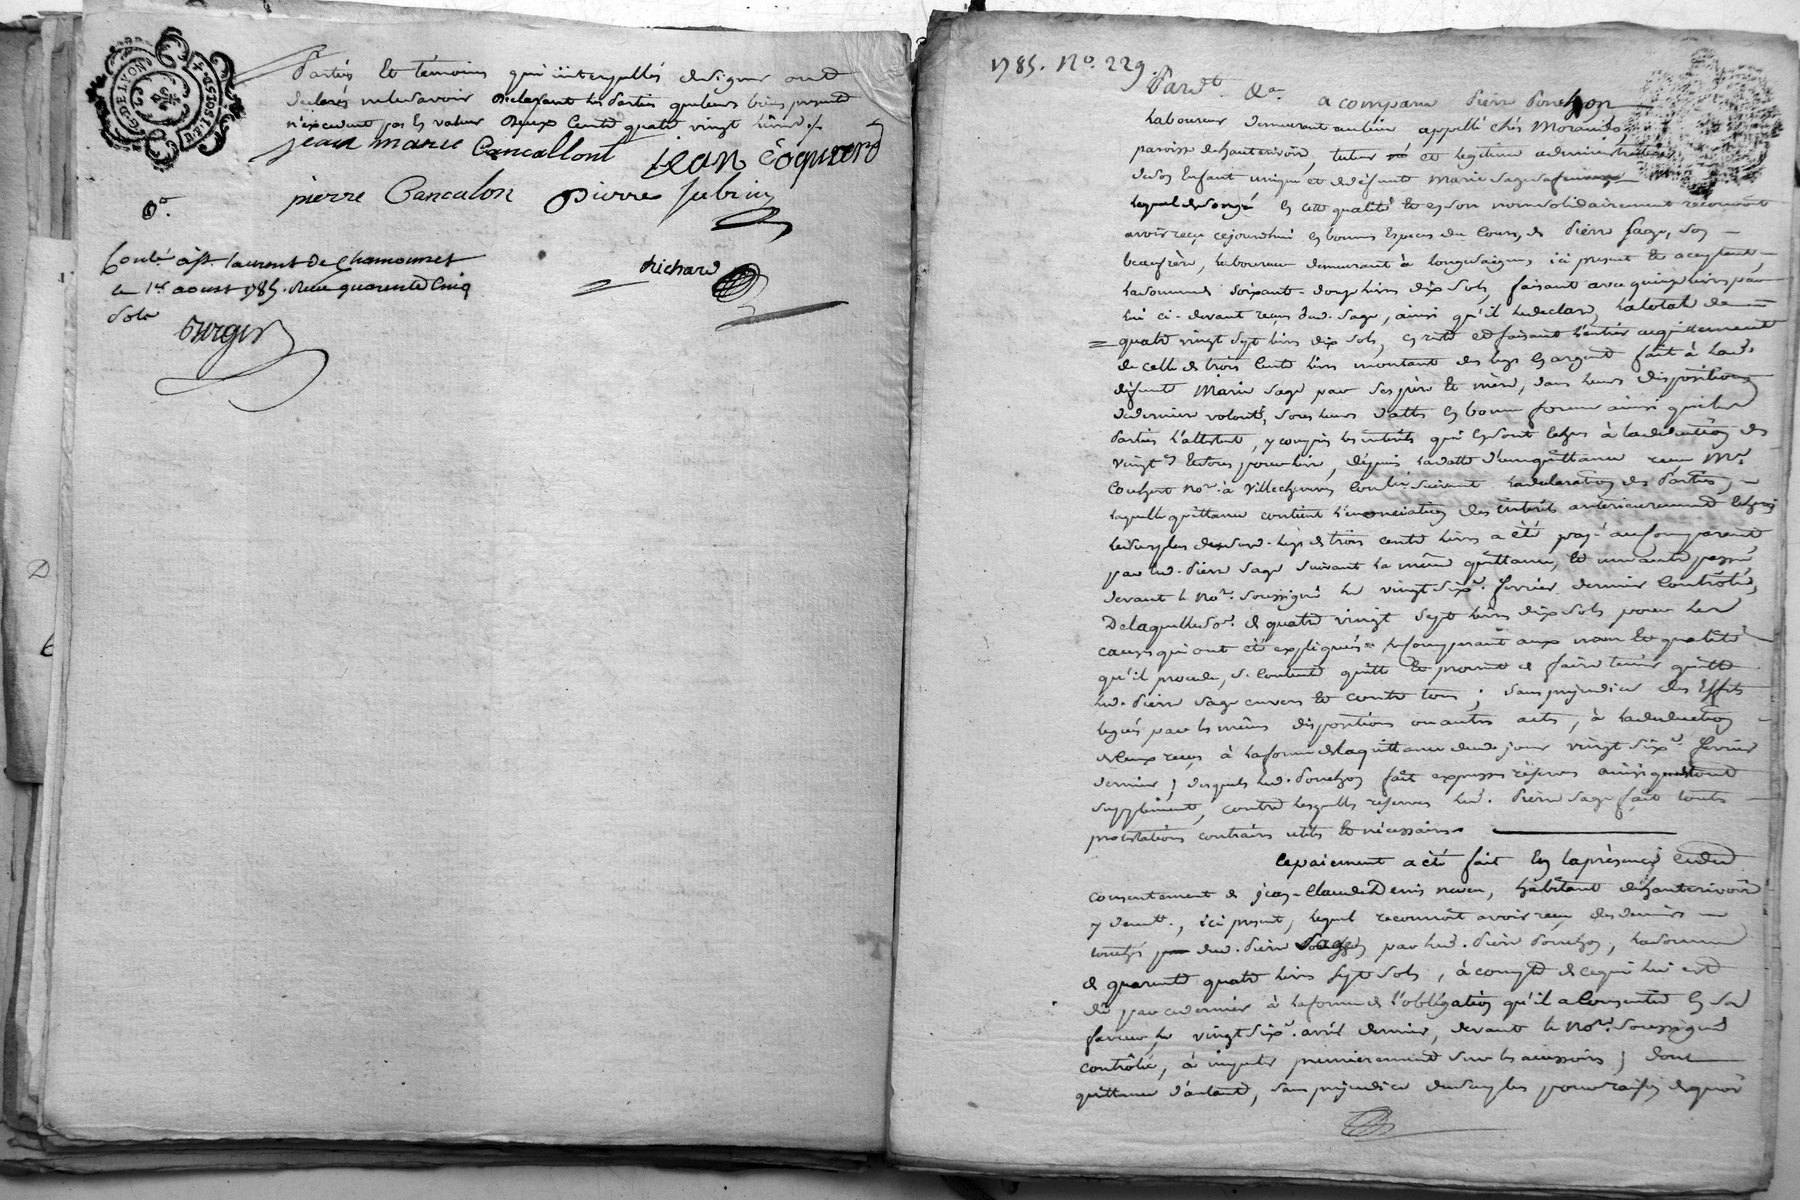 G. DE LYON
Parties et témoins qui interpellés de signer ont
declarés ne le savoir declarant les parties que leurs biens presents
n'excedent pas la valeur deux cents quatre vingt livres
jean marie Cancallont jean Coqurend
pierre Cancalon pierre jubrin
Contlé à st. laurent de Chamousset
le 1er aoust 1785. Reçu quarente Cinq
sols
Richard
1785. No. 229
Pardt. &a. a comparu Pierre Ponchon
laboureur demeurant au lieu appellé chés Morand
paroisse de hauterivoire, tuteur et legitime administrateur
de son Enfant unique et de défunte Marie Sage sa femme,
lequel de son gré en cette qualité et en son nom solidairement reconnoit
avoir reçu cejourdhui en bonnes Especes du Cours, de Pierre Sage, son
beaufrère, laboureur demeurant à longessaigne ici present et acceptant,
la somme de soixante-douze livres dix sols, faisant avec quinze livres par
lui ci-devant reçus dud. Sage, ainsi qu'il le declare, la total de
quatre vingt sept livres dix sols, en reste et faisant l'entier acquittement
de celle de trois Cents livres montant des legs en argent fait à lad.
défunte Marie Sage par ses père et mère, dans leurs dispositions
de dernière volonté, sous leurs dattes en bonne forme ainsi que les
Parties l'attestent, y compris les intérêts qui en sont échus à la déduction des
vingt. et deux pour livre, dépuis la datte d'une quittance reçue Me.
Couhert Nore. à Villechenève Contlée. Suivant la déclaration des Parties,
laquelle quittance contient l'énonciation des intérêts antérieurement échus
le surplus dud. legs de trois cents livres a été payé au Comparant
par led. Pierre Sage suivant la même quittance, et une autre passée
devant le Nore. Soussigné le vingt six. fevrier dernier Contrôlée,
De laquelle so. de quatre vingt sept livres dix sols pour les
causes qui ont été expliquées le Comparant aux noms et qualités
qu'il procede, se Contente quitte et promet de faire tenir quitte
led. Pierre Sage envers et contre tous; sans prejudice des Effets
legués par les mêmes dispositions ou autres actes, à la déduction
de ceux reçus à la forme de la quittance dud. jour vingt six. fevrier
dernier; desquels led. Ponchon fait expresses réserves ainsi que de tout
supplément, contre lesquelles reserves led. Pierre Sage fait toutes
protestations contraires utiles et nécessaires
Ce paiement a été fait En la présence et du
consentement de jean-Claude Denis neveu, habitant de hauterivoire
y demt., ici present, lequel reconnoît avoir reçu des deniers
touchés dud. Pierre Sage par led. Pierre Ponchon, la somme
de quarente quatre livres sept sols, à compte de ce qui lui est
dû par ce dernier à la forme de l'obligation qu'il a Consentie En sa
faveur le vingt six. avril dernier, devant le Nore. Soussigné
contrôlée, à imputer premierement sur les accessoires; dont
quittance d'autant, sans prejudice du surplus pour raison de quoi